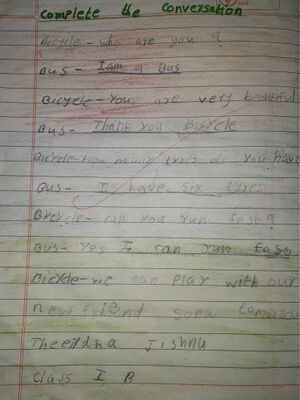 Complete the Conversation
Bicycle - who are you?
Bus - I am a Bus
Bicycle - You are very beautiful
Bus - Thank you Bicycle
Bicycle - how many tires do you have
Bus - I have six tires
Bicycle - can you run fast?
Bus - Yes I can run fast
Bicycle - we can play with our
new friend sona
Theerdha Jishnu
Class I B